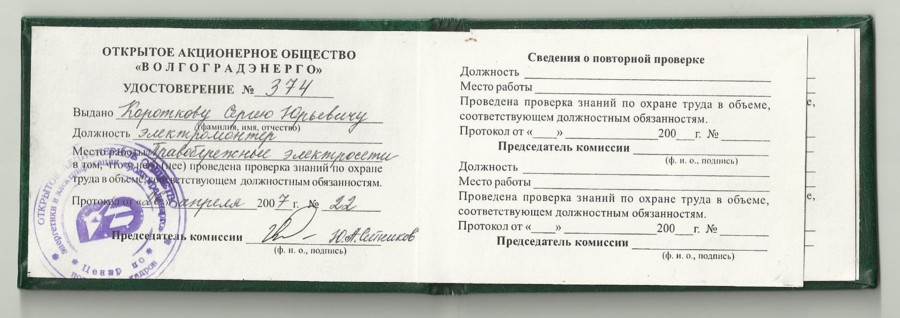 ОТКРЫТОЕ АКЦИОНЕРНОЕ ОБЩЕСТВО
«ВОЛГОГРАДЭНЕРГО»
УДОСТОВЕРЕНИЕ № 374
Выдано Короткову Сергею Юрьевичу
(фамилия, имя, отчество)
Должность электромонтер
Место работы Правобережные электросети
в том, что у него (нее) проведена проверка знаний по охране
труда в объеме, соответствующем должностным обязанностям.
Протокол от апреля 2007 г. № 22
Председатель комиссии Ю.А.Ситников
(ф. и о., подпись)
ОТКРЫТОЕ АКЦИОНЕРНОЕ ОБЩЕСТВО
Сведения о повторной проверке
Должность
Место работы
Проведена проверка знаний по охране труда в объеме,
соответствующем должностным обязанностям.
Протокол от «___» 200__ г. №
Председатель комиссии
(ф. и. о., подпись)
Должность
Место работы
Проведена проверка знаний по охране труда в объеме,
соответствующем должностным обязанностям.
Протокол от «___» 200__г. №
Председатель комиссии
(ф. и о., подпись)